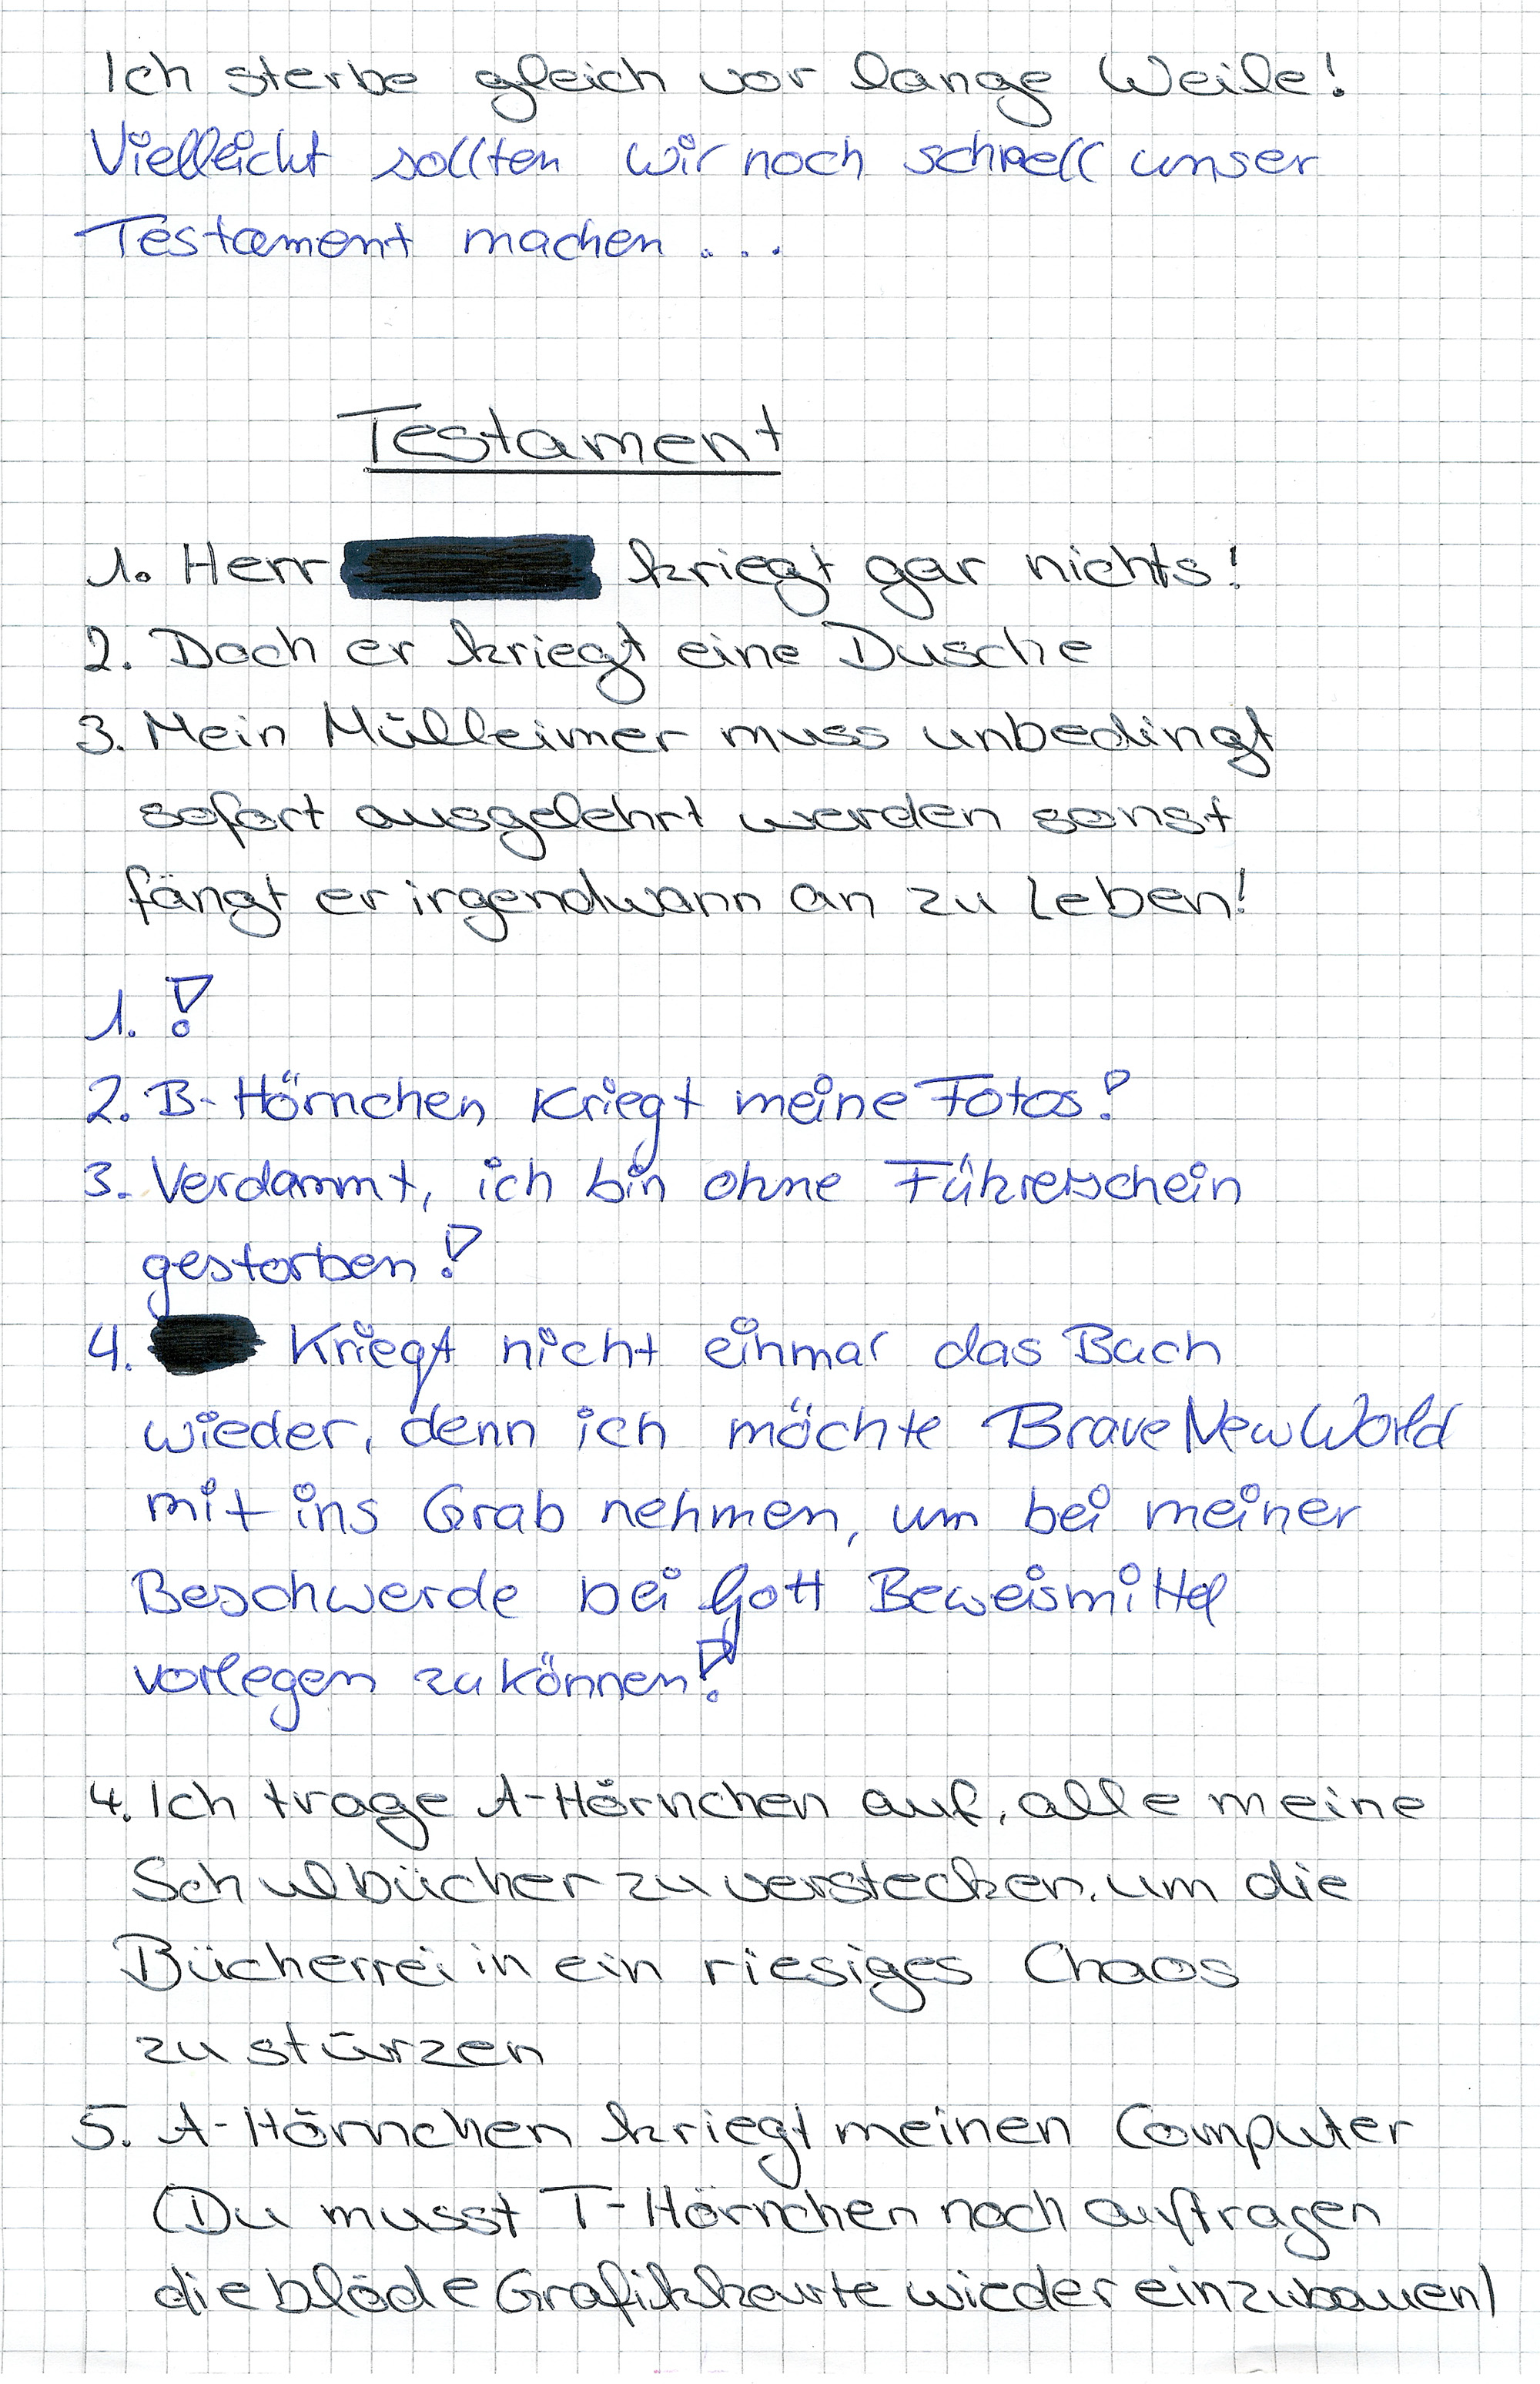 Ich sterbe gleich vor lange Weile!
Vielleicht sollten wir noch schnell unser
Testament machen...
Testament
1. Herr kriegt gar nichts!
2. Doch er kriegt eine Dusche
3. Mein Mülleimer muss unbedingt
sofort ausgelehrt werden sonst
fängt er irgendwann an zu leben!
1. !
2. B-Hörnchen kriegt meine Fotos!
3. Verdammt, ich bin ohne Führerschein
gestorben!
4. Kriegt nicht einmal das Buch
wieder, denn ich möchte Brave New World
mit ins Grab nehmen, um bei meiner
Beschwerde bei Gott Beweismittel
vorlegen zu können!
4. Ich trage A-Hörnchen auf, alle meine
Schulbücher zu verstecken, um die
Bücherrei in ein riesiges Chaos
zu stürzen
5. A-Hörnchen kriegt meinen Computer
(Du musst T-Hörnchen noch auftragen
die blöde Grafikkarte wieder einzubauen)